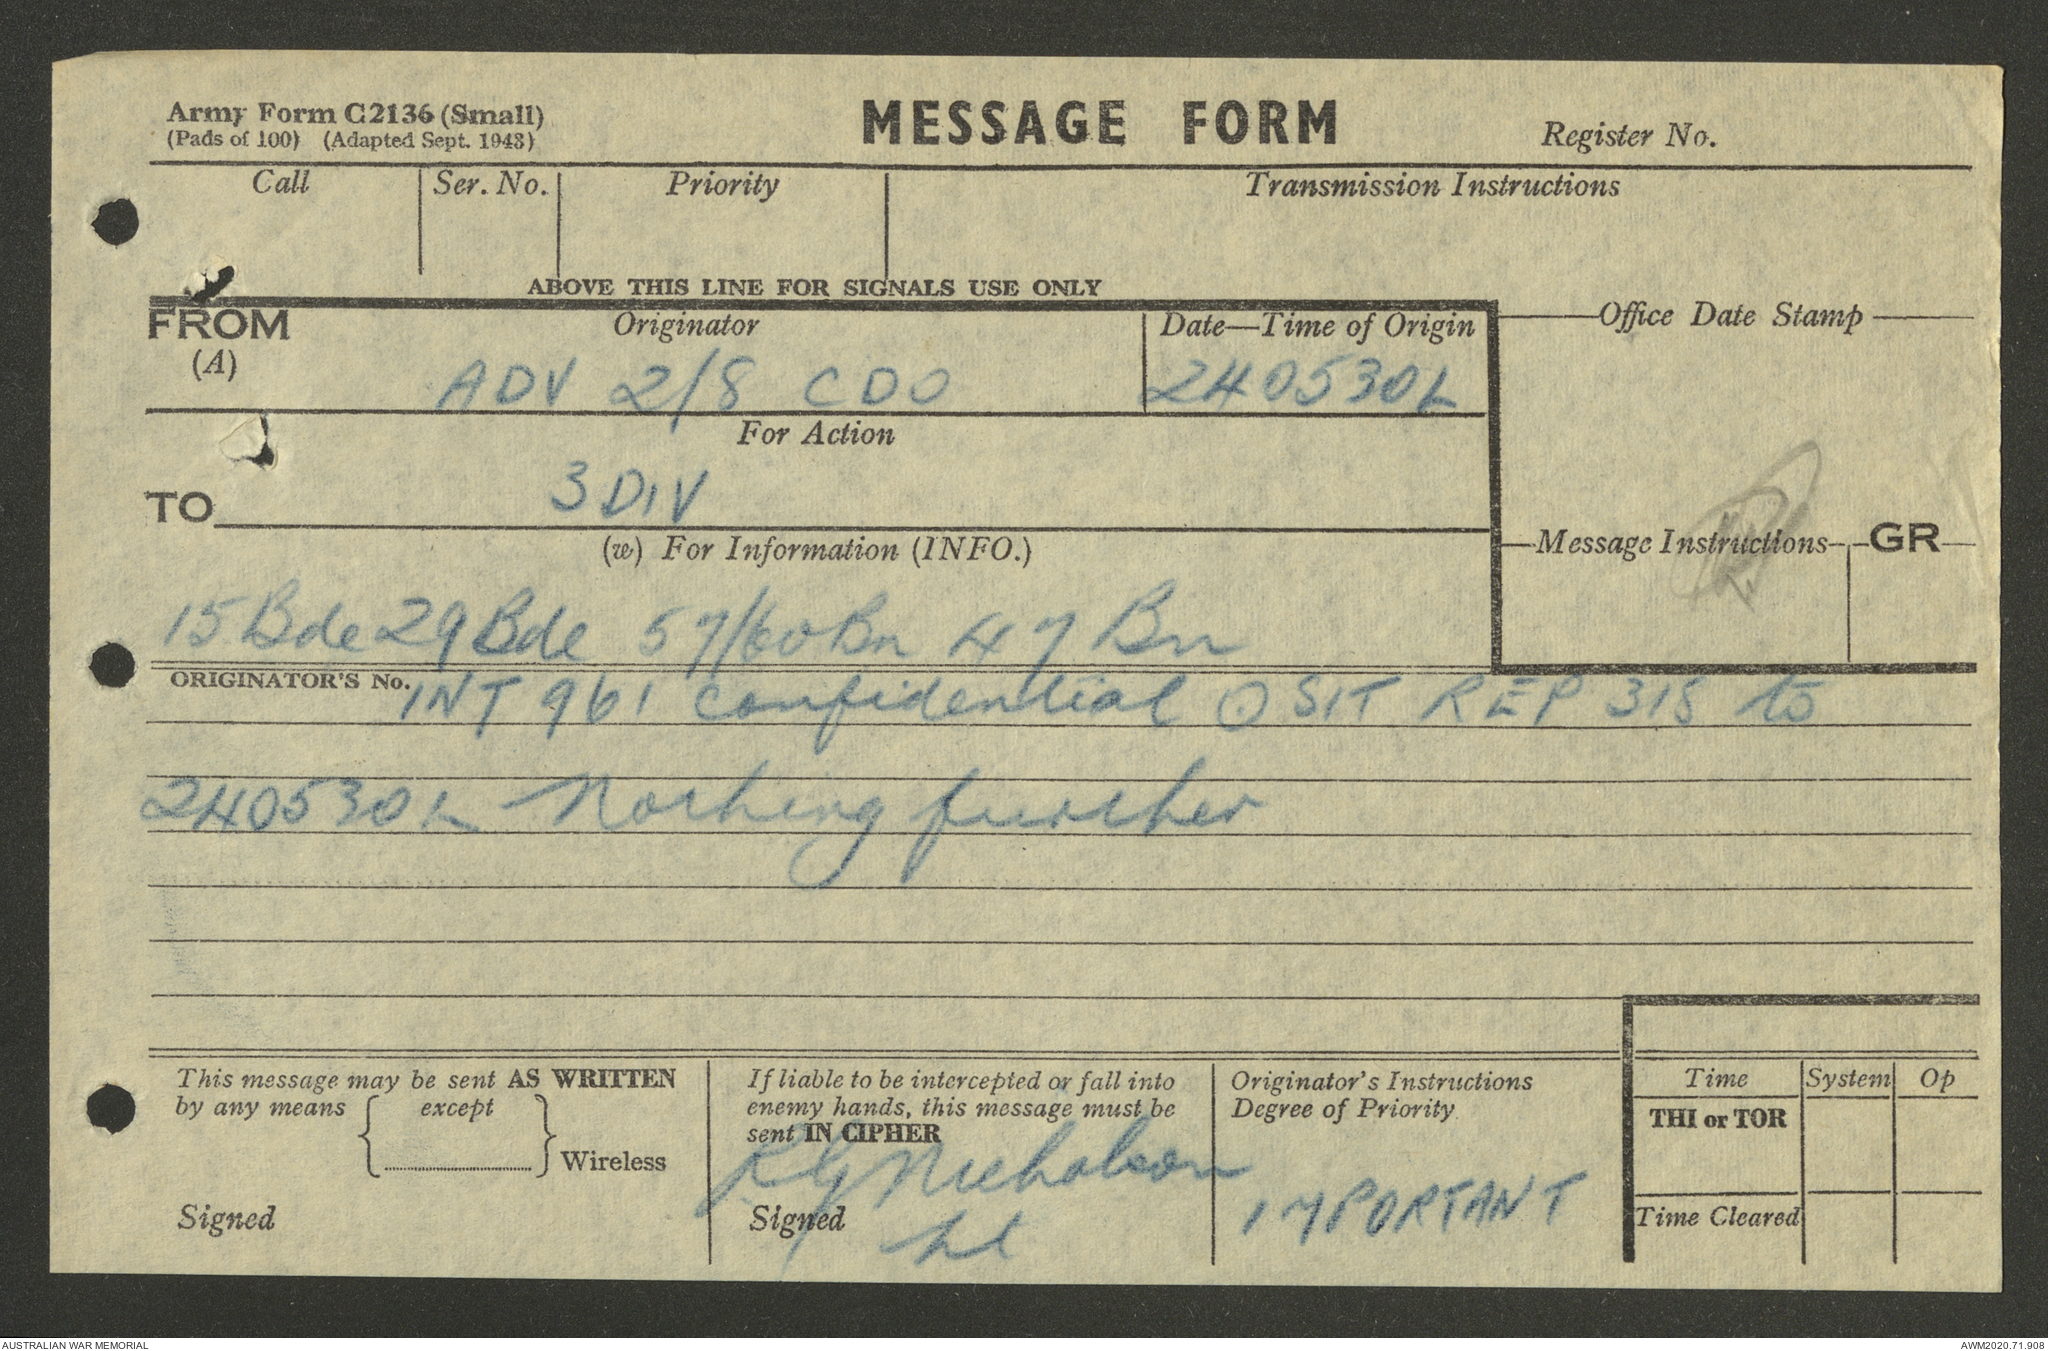 Army Form C2136 (Small)
(Pads of 100) (Adapted Sept. 1943)
MESSAGE FORM
Register No.
Call
Ser. No.
Priority
Transmission Instructions
ABOVE THIS LINE FOR SIGNALS USE ONLY
FROM
(A)
Originator
ADV 2/8 CDO
Date—Time of Origin
240530L
Office Date Stamp
For Action
TO
3 DIV
(w) For Information (INFO.)
Message Instructions
GR
15 Bde 29 Bde 57/60 Bn 47 Bn
ORIGINATOR'S No.
INT 961 confidential ⊙ SIT REP 318 to
240530L Nothing further
This message may be sent AS WRITTEN
by any means { except
} Wireless
Signed
If liable to be intercepted or fall into
enemy hands, this message must be
sent IN CIPHER
Nicholson
Signed
Lt
Originator's Instructions
Degree of Priority
IMPORTANT
Time
System
Op
THI or TOR
Time Cleared
AUSTRALIAN WAR MEMORIAL
AWM2020.71.908